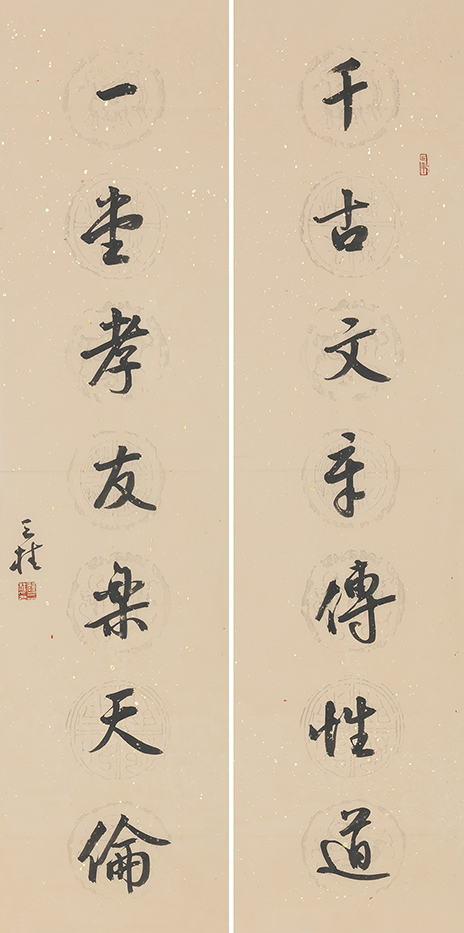 千古文章傳性道
一堂孝友楽天倫